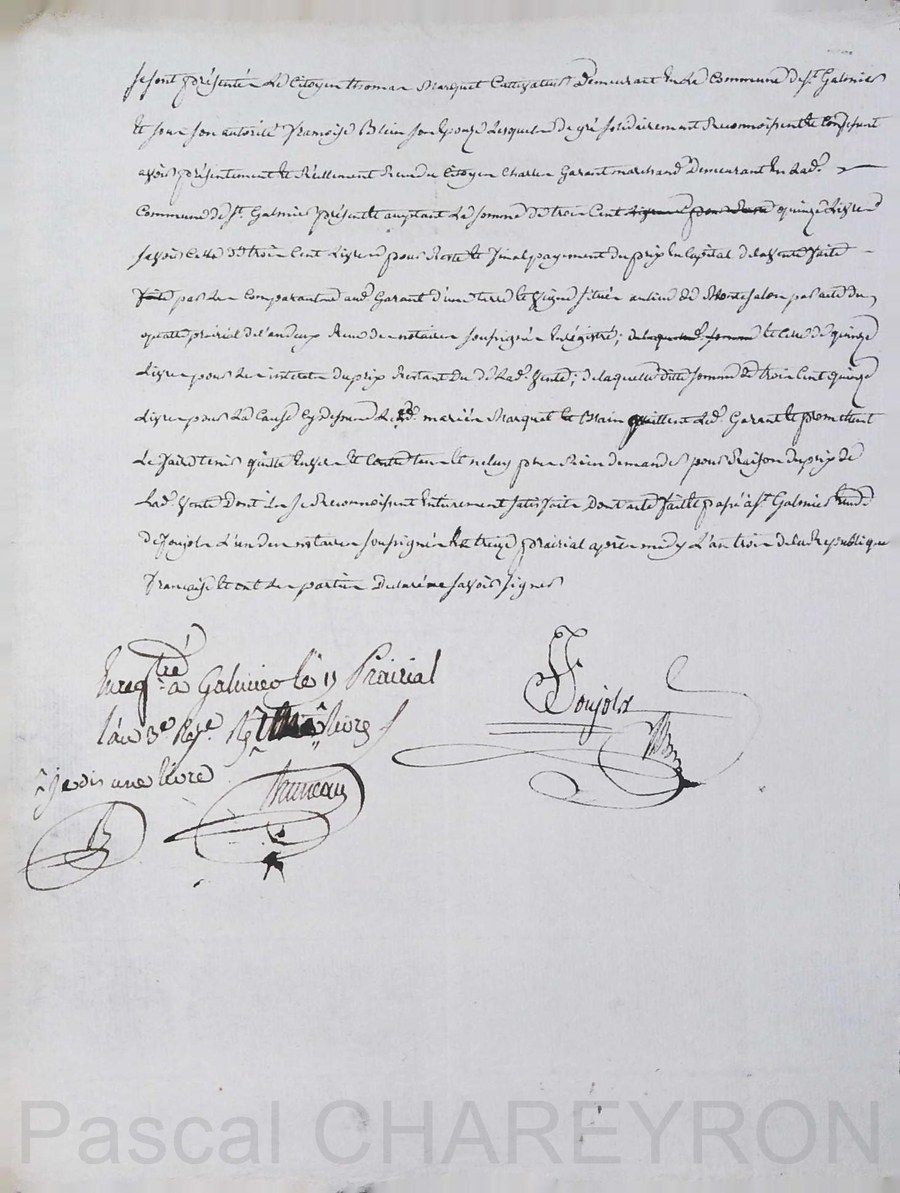 se sont présentés Le Citoyen thomas Marquet Cultivateur Demeurant En La Commune de st. Galmier
Et sous son autorité françoise Blein son Epouze Lesquels de gré solidairement Reconnoissent Et Confessent
avoir présentement Et Réellement Recu du Citoyen Charles Garant marchand Demeurant En Lad.
Commune de St. Galmier présent Et acceptant La somme De trois Cent quinze Livres
savoir Celle De trois Cent Livres pour Reste Et final payement du prix En Capital de la Vente faite
par Les Comparants aud. Garant d'une terre Et Vigne située au lieu de Montesalon par acte du
quatre prairial de l'an deux Reçu des notaires soussignés Enrégistré; Et Celle de quinze
Livres pour Les interets du prix Restant du de Lad. Vente; de laquelle dite somme De trois Cent quinze
Livres pour La Cause Cy dessus Les mariés Marquet Et Blein quittent Led. Garant Et promettent
Le faire tenir quitte Envers Et Contre tous Et ne luy plus Rien demander pour Raison du prix de
Lad. Vente Dont ils se Reconnoissent Entierement satisfaits Dont acte fait Et passé à st. Galmier Etude
de Joujols L'un des notaires soussignés Le treize prairial après midy L'an trois de la Republique
française Et ont Les parties Declaré ne savoir signer
Joujols
Enregtré à Galmier le 13 Prairial
l'an 3e Rep.e livre
je dis une livre
Bruneau
Pascal CHAREYRON